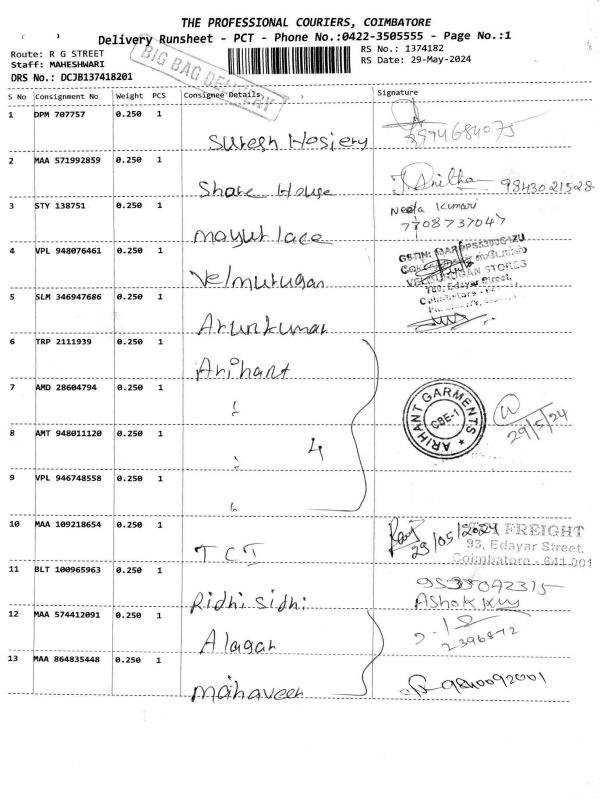 THE PROFESSIONAL COURIERS, COIMBATORE
Delivery Runsheet - PCT - Phone No.:0422-3505555 - Page No.:1
Route: R G STREET
RS No.: 1374182
Staff: MAHESHWARI
RS Date: 29-May-2024
DRS No.: DCJB137418201
BIG BAG DELIVERY
S No Consignment No Weight PCS Consignee Details Signature
1 DPM 707757 0.250 1
Suresh Hosiery
2 MAA 571992859 0.250 1
Share House 9843021528
3 STY 138751 0.250 1 Neeta Kumari
mayur lace 7708737047
4 VPL 948076461 0.250 1
Velmurugan
VELMURUGAN STORES
780, Edayar Street,
Coimbatore
5 SLM 346947686 0.250 1
Arunkumar
6 TRP 2111939 0.250 1
Arihant
7 AMD 28604794 0.250 1
ARIHANT GARMENTS
CBE-1
29/5/24
8 AMT 948011120 0.250 1
4
9 VPL 946748558 0.250 1
10 MAA 109218654 0.250 1
TCI
29/05/2024
FREIGHT
93, Edayar Street,
Coimbatore - 641 001
11 BLT 100965963 0.250 1
Ridhi sidhi
12 MAA 574412091 0.250 1
Alagar
13 MAA 864835448 0.250 1
mahaveer 9840092001